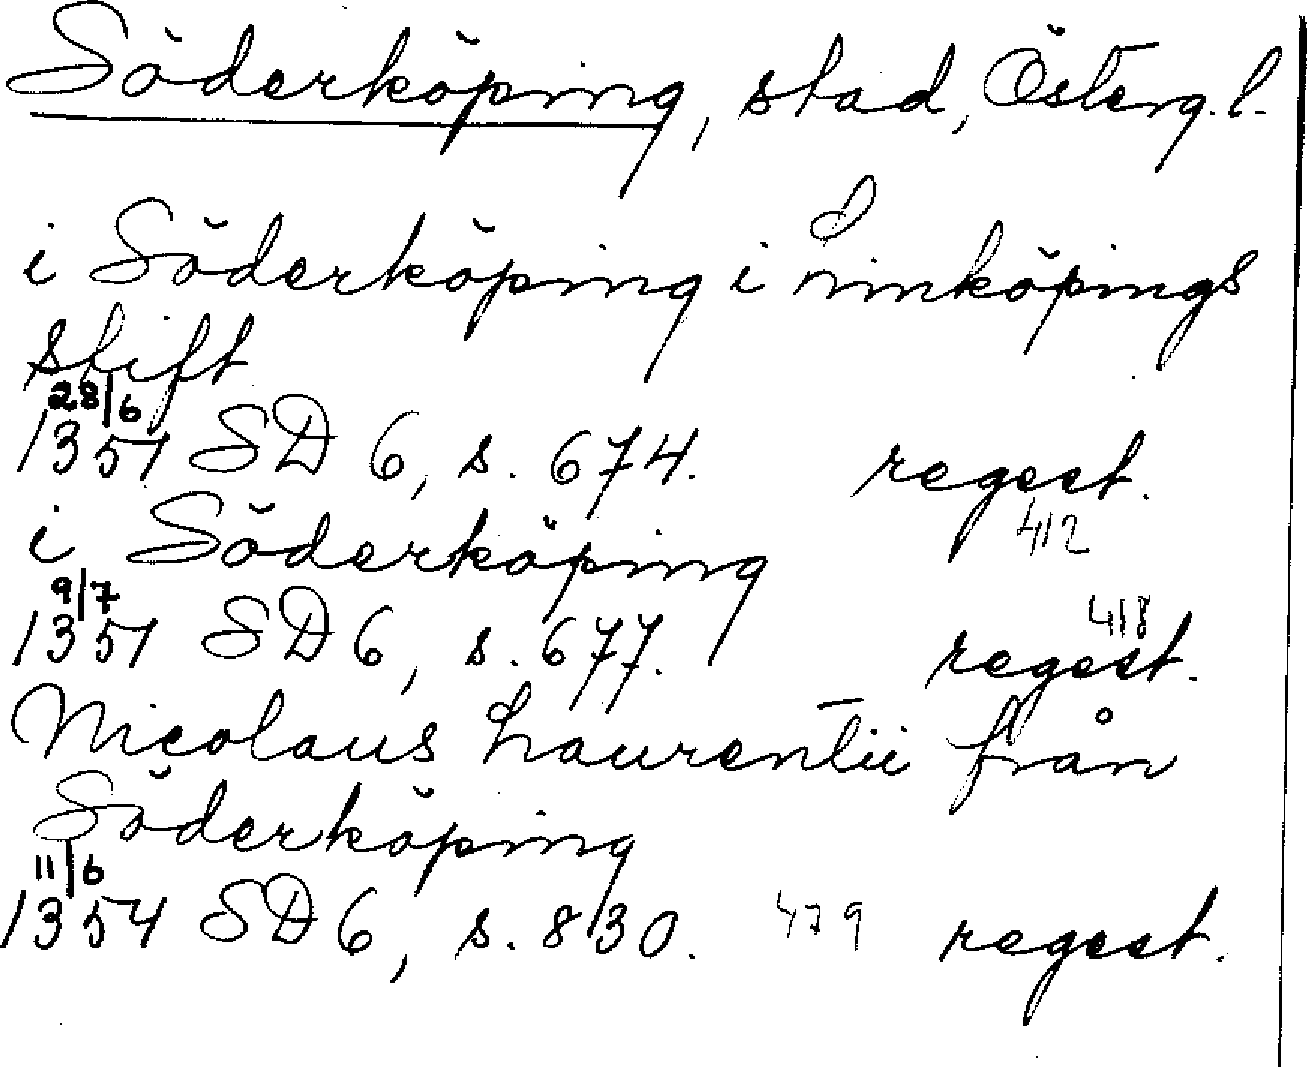 Söderköping, stad, Österg.l.
i Söderköping i Linköpings
stift
28/6
1351 SD 6, s. 674. regest.
412
i Söderköping
9/7
418
1351 SD 6, s. 677. regest.
Nicolaus Laurentii från
Söderköping
11/6
1354 SD 6, s. 830. 479 regest.